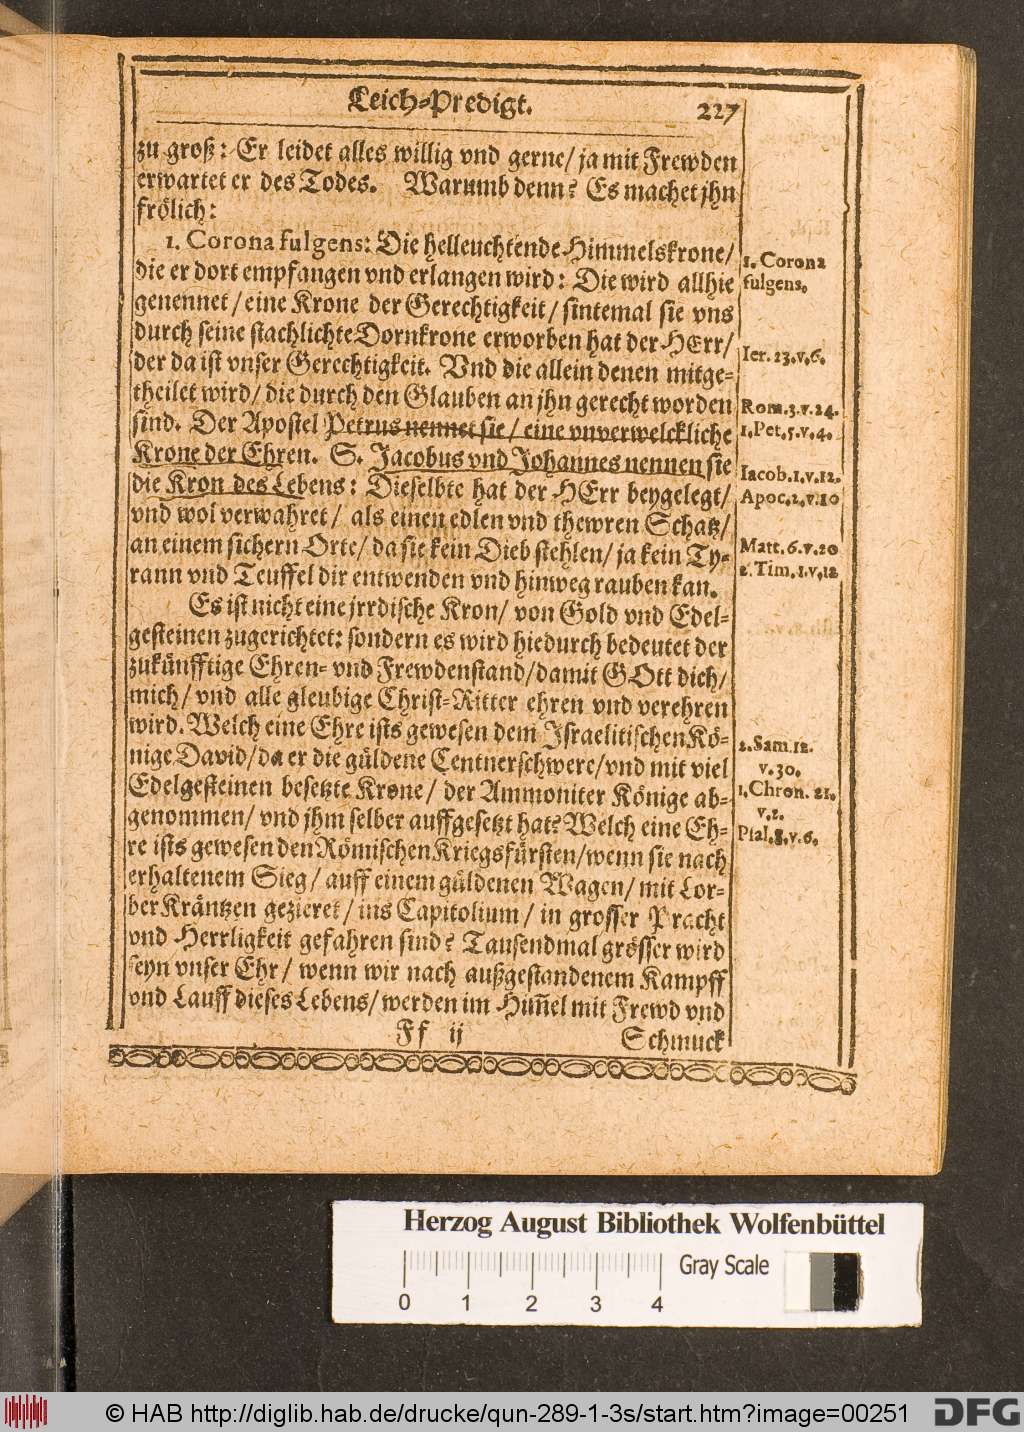 Leich-Predigt. 227
zu groß: Er leidet alles willig vnd gerne/ ja mit Frewden
erwartet er des Todes. Warumb denn? Es machet jhn
frölich:
1. Corona fulgens: Die helleuchtende Himmelskrone/
die er dort empfangen vnd erlangen wird: Die wird allhie
genennet/ eine Krone der Gerechtigkeit/ sintemal sie vns
durch seine stachlichte Dornkrone erworben hat der HErr/
der da ist vnser Gerechtigkeit. Vnd die allein denen mitge-
theilet wird/ die durch den Glauben an jhn gerecht worden
sind. Der Apostel Petrus nennet sie/ eine vnverwelckliche
Krone der Ehren. S. Jacobus vnd Johannes nennen sie
die Kron des Lebens: Dieselbte hat der HErr beygelegt/
vnd wol verwahret/ als einen edlen vnd thewren Schatz/
an einem sichern Orte/ da sie kein Dieb stehlen/ ja kein Ty-
rann vnd Teuffel dir entwenden vnd hinweg rauben kan.
Es ist nicht eine jrrdische Kron/ von Gold vnd Edel-
gesteinen zugerichtet: sondern es wird hiedurch bedeutet der
zukünfftige Ehren- vnd Frewdenstand/ damit GOtt dich/
mich/ vnd alle gleubige Christ-Ritter ehren vnd verehren
wird. Welch eine Ehre ists gewesen dem Israelitischen Kö-
nige David/ da er die güldene Centnerschwere/ vnd mit viel
Edelgesteinen besetzte Krone/ der Ammoniter Könige ab-
genommen/ vnd jhm selber auffgesetzt hat? Welch eine Eh-
re ists gewesen den Römischen Kriegsfürsten/ wenn sie nach
erhaltenem Sieg/ auff einem güldenen Wagen/ mit Lor-
ber Kräntzen gezieret/ ins Capitolium/ in grosser Pracht
vnd Herrligkeit gefahren sind? Tausendmal grösser wird
seyn vnser Ehr/ wenn wir nach außgestandenem Kampff
vnd Lauff dieses Lebens/ werden im Him̅el mit Frewd vnd
Ff ij Schmuck
1. Corona
fulgens.
Ier. 23. v. 6.
Rom. 3. v. 24.
1. Pet. 5. v. 4.
Iacob. 1. v. 12.
Apoc. 2. v. 10
Matt. 6. v. 20
2. Tim. 1. v. 12
2. Sam. 12.
v. 30.
1. Chron. 21.
v. 2.
Psal. 8. v. 6.
Herzog August Bibliothek Wolfenbüttel
Gray Scale
0 1 2 3 4
© HAB http://diglib.hab.de/drucke/qun-289-1-3s/start.htm?image=00251
DFG